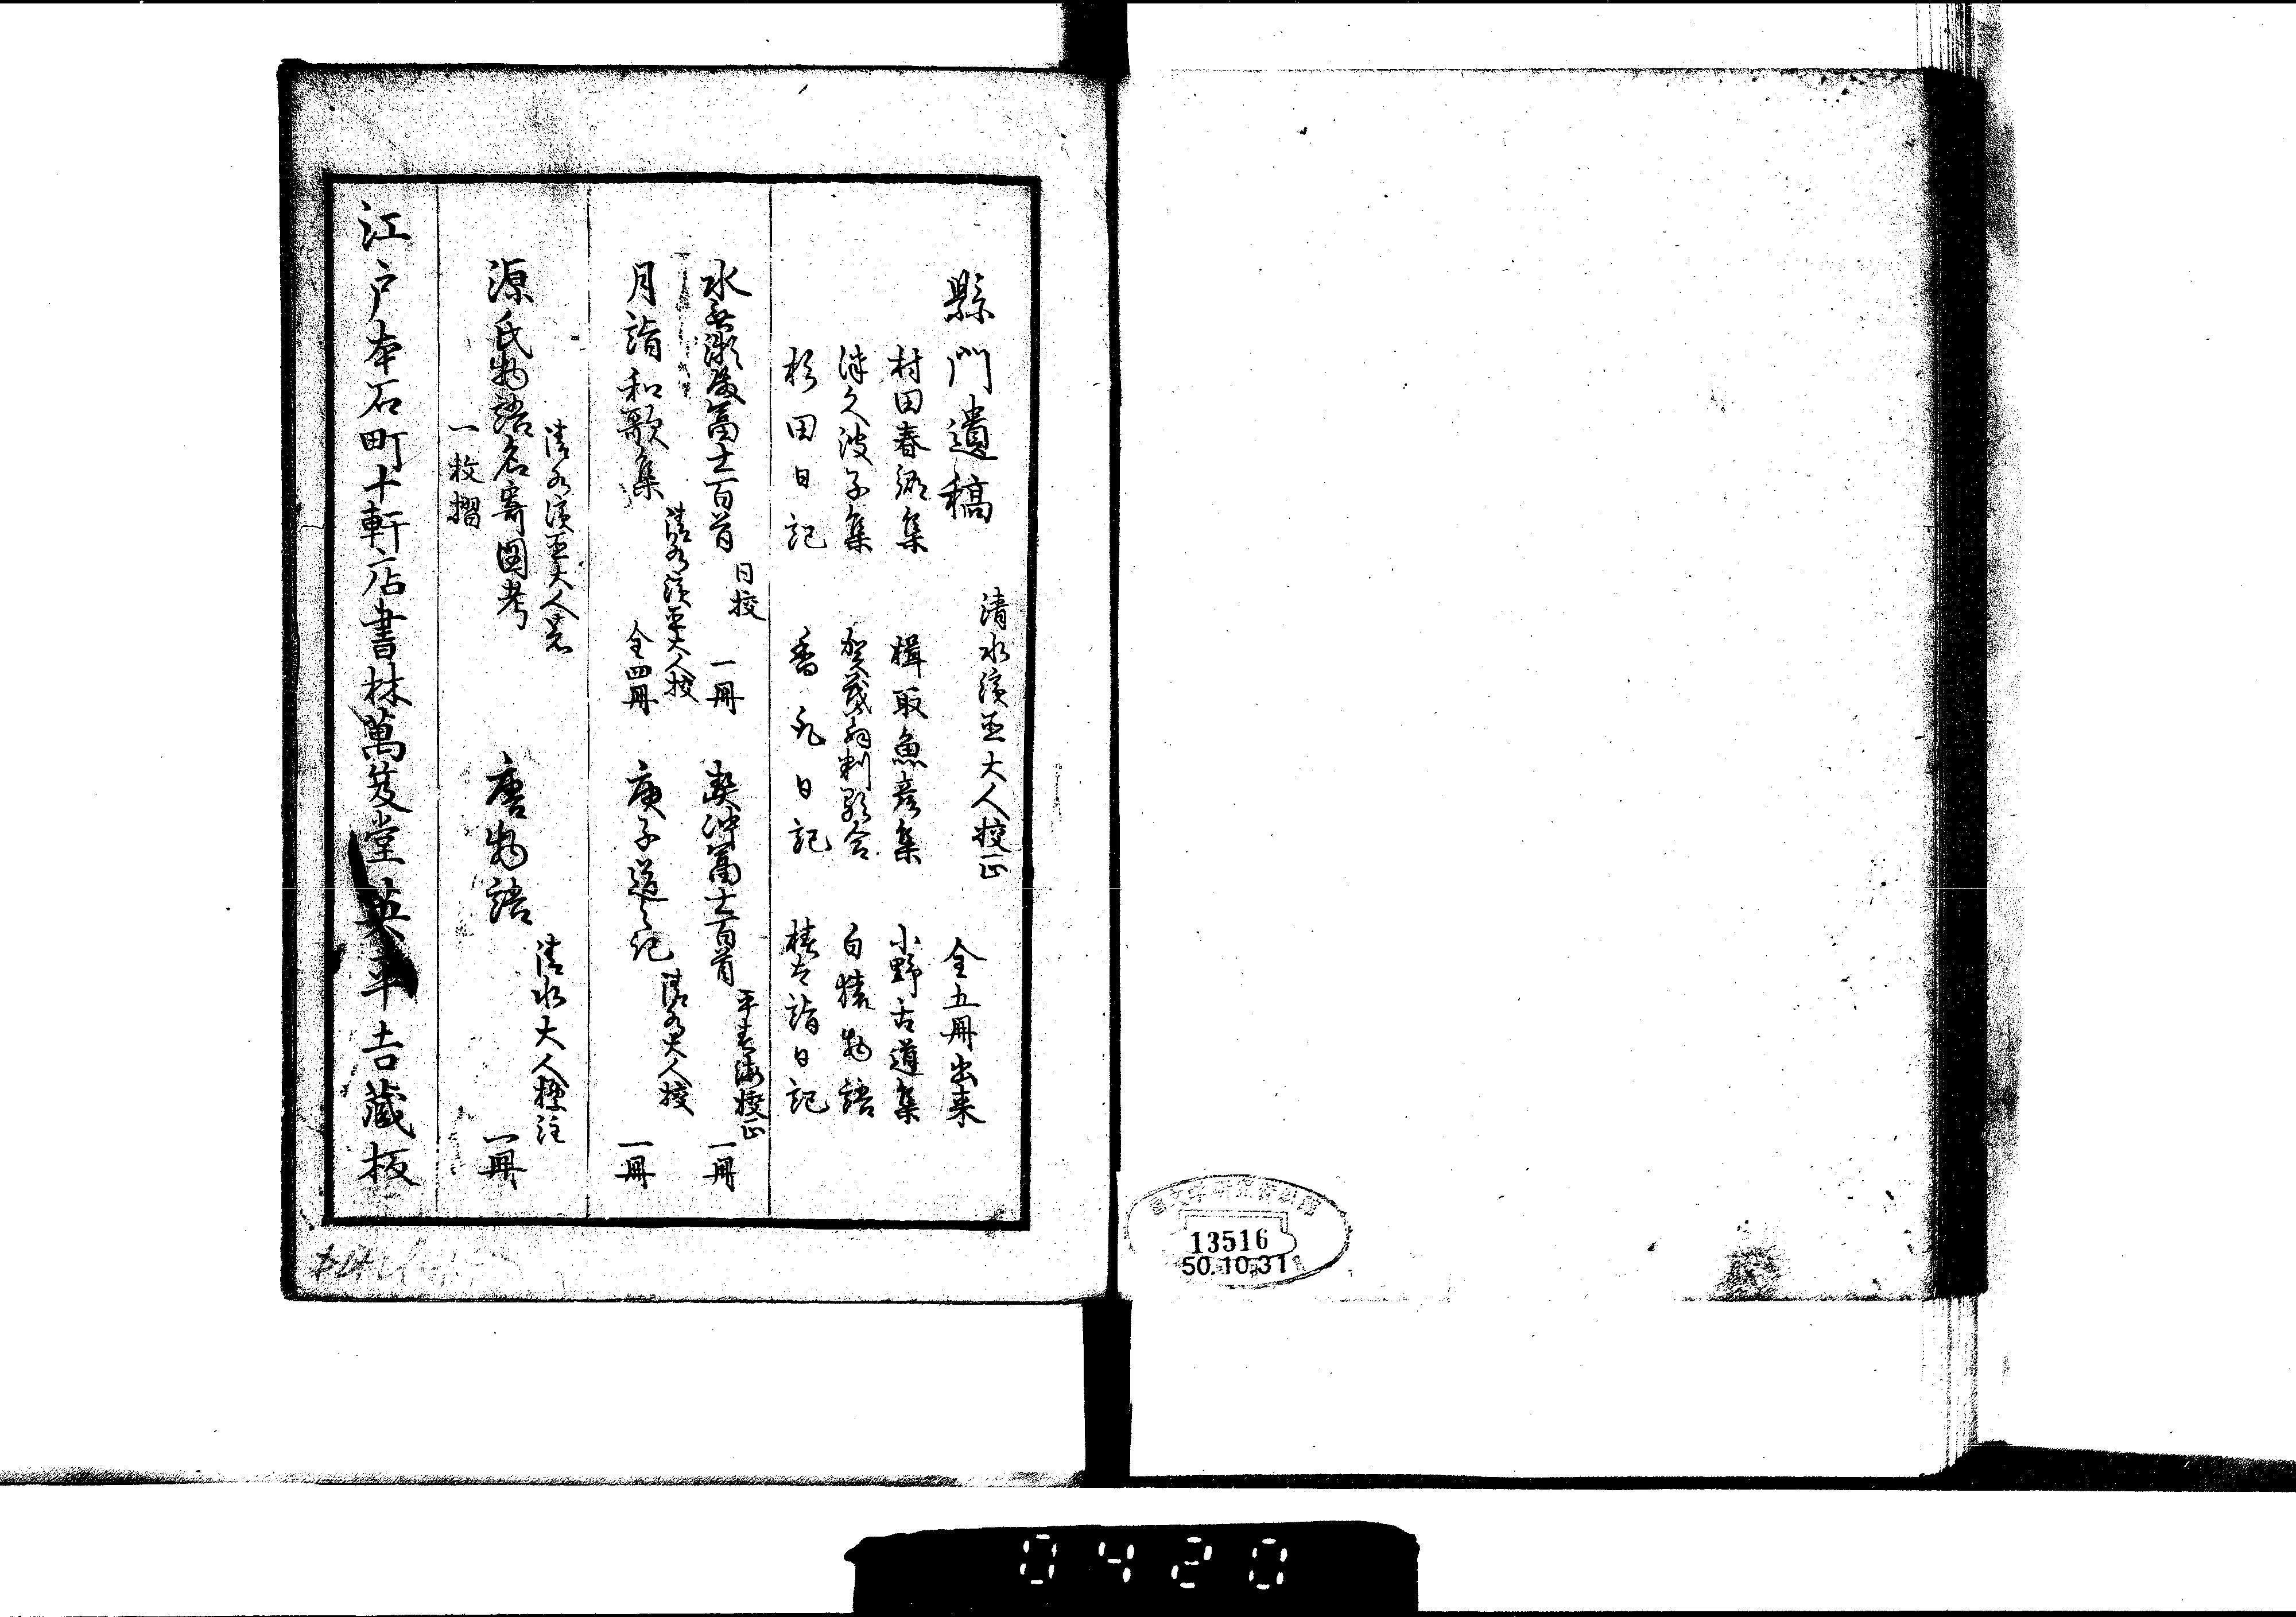 縣門遺稿 清水濱臣大人校正 全五冊出来
村田春郷集 楫取魚彦集 小野古道集
津久波子集 賀茂翁判歌合 白猿物語
杉田日記 香取日記 椿太詣日記
水無瀬殿富士百首 同校 一冊 契沖富士百首 平春海校正 一冊
月詣和歌集 清水濱臣大人校 全四冊 庚子道之記 清水大人校 一冊
源氏物語名寄図考 清水濱臣大人著 一枚摺 唐物語 清水大人標註 一冊
江戸本石町十軒店書林萬笈堂英平吉蔵板
13516
50.10.31
0420